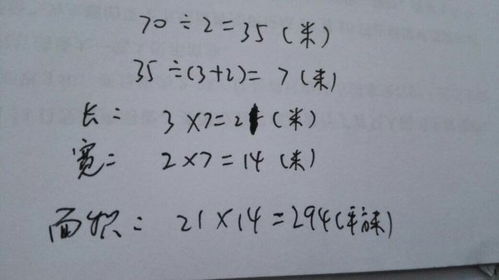 70÷2=35(米)
35÷(3+2)=7(米)
长= 3×7=21(米)
宽= 2×7=14(米)
面积= 21×14=294(平方米)